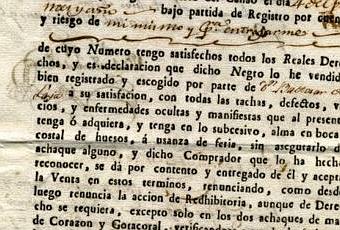 bajo partida de Registro por cuen
y riesgo de mi mismo y
de cuyo Numero tengo satisfechos todos los Reales Dere
chos, y es declaracion que dicho Negro lo he vendid
bien registrado y escogido por parte de
à su satisfaccion, con todas las tachas, defectos, v
cios, y enfermedades ocultas y manifiestas que al presen
tenga ó adquiera, y tenga en lo subcesivo, alma en boca
costal de huesos, á usanza de feria, sin asegurarlo d
achaque alguno, y dicho Comprador que lo ha hech
reconocer, se dá por contento y entregado de él y acept
la Venta en estos terminos, renunciando, como desd
luego renuncia la accion de Redhibitoria, aunque de Dere
cho se requiera, excepto solo en los dos achaques de ma
de Corazon y Gotacoral,